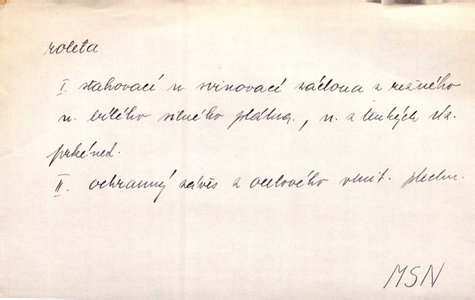 roleta
I. stahovací n. svinovací záclona z režného
n. bílého silného plátna, n. z tenkých
prkének.
II. ochranný závěs z ocelového vlnit. plechu.
MSN